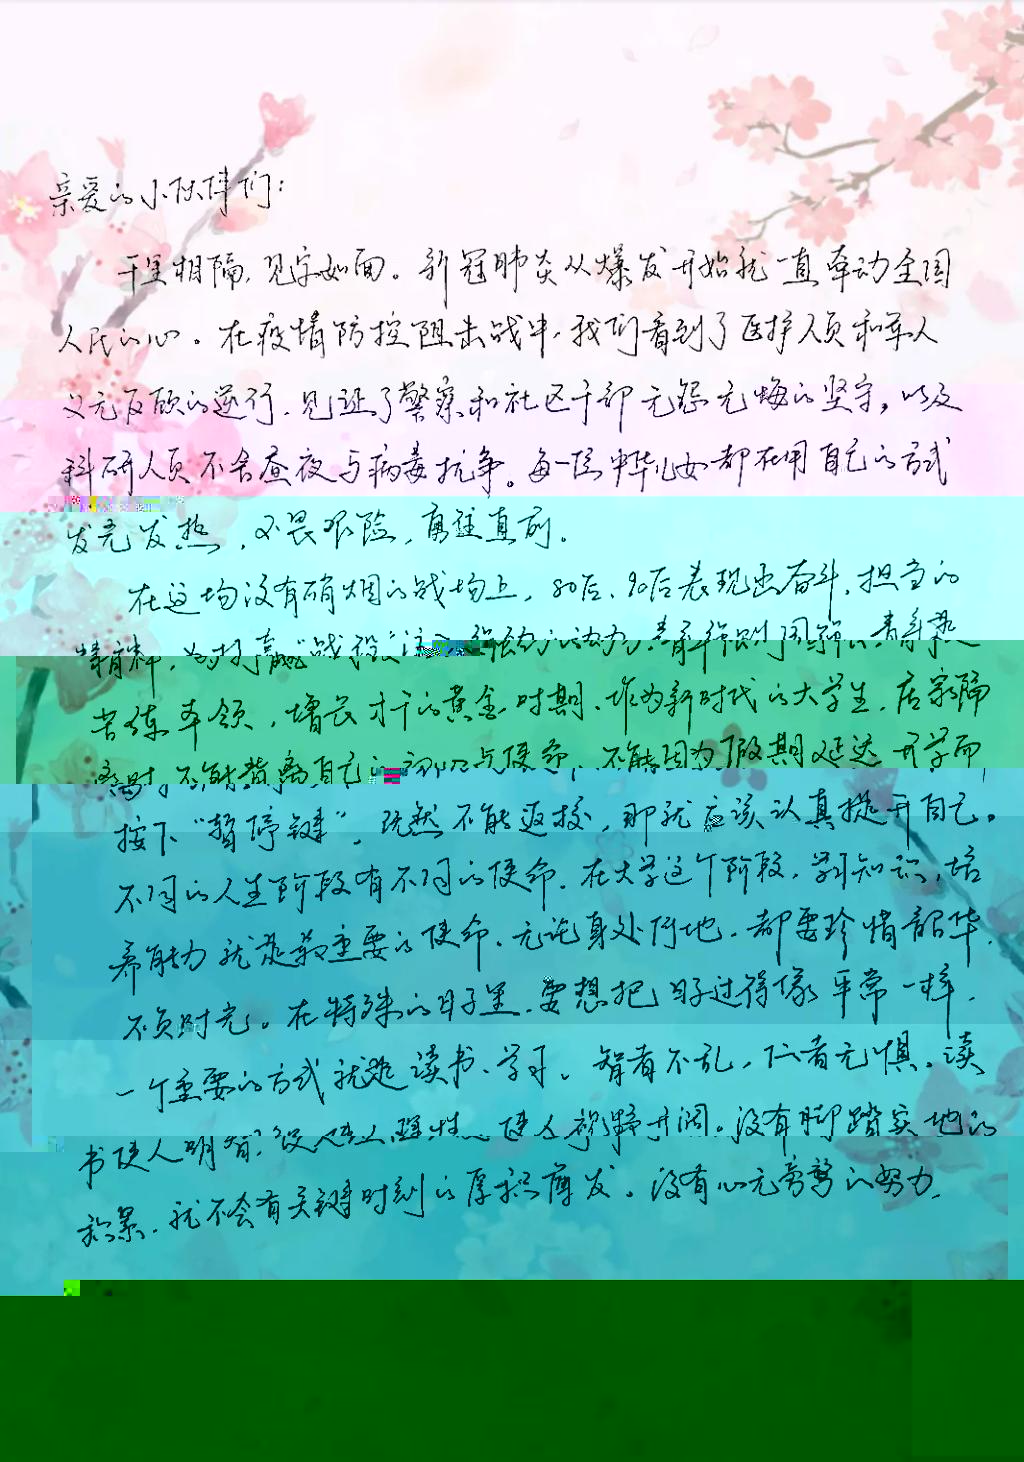 亲爱的小伙伴们：
千里相隔，见字如面。新冠肺炎从爆发开始就一直牵动全国
人民的心。在疫情防控阻击战中，我们看到了医护人员和军人
义无反顾的逆行，见证了警察和社区干部无怨无悔的坚守，以及
科研人员不舍昼夜与病毒抗争。每一位中华儿女都在用自己的方式
发光发热，不畏艰险，勇往直前。
在这场没有硝烟的战场上，80后、90后表现出奋斗、担当的
精神，为打赢“战役”注入强劲的动力，青年强则国强，青年是
苦练本领，增长才干的黄金时期，作为新时代的大学生，居家隔
离时，不能背离自己 初心与使命，不能因为假期延迟开学而
按下“暂停键”，既然不能返校，那就应该认真提升自己。
不同的人生阶段有不同的使命，在大学这个阶段，学习知识，培
养能力就是最重要的使命，无论身处何地，都要珍惜韶华，
不负时光。在特殊的日子里，要想把日子过得像平常一样，
一个重要的方式就是读书、学习。智者不乱，仁者无惧。读
书使人明智， 使人理性，使人视野开阔。没有脚踏实地的
积累，就不会有关键时刻的厚积薄发。没有心无旁骛的努力，